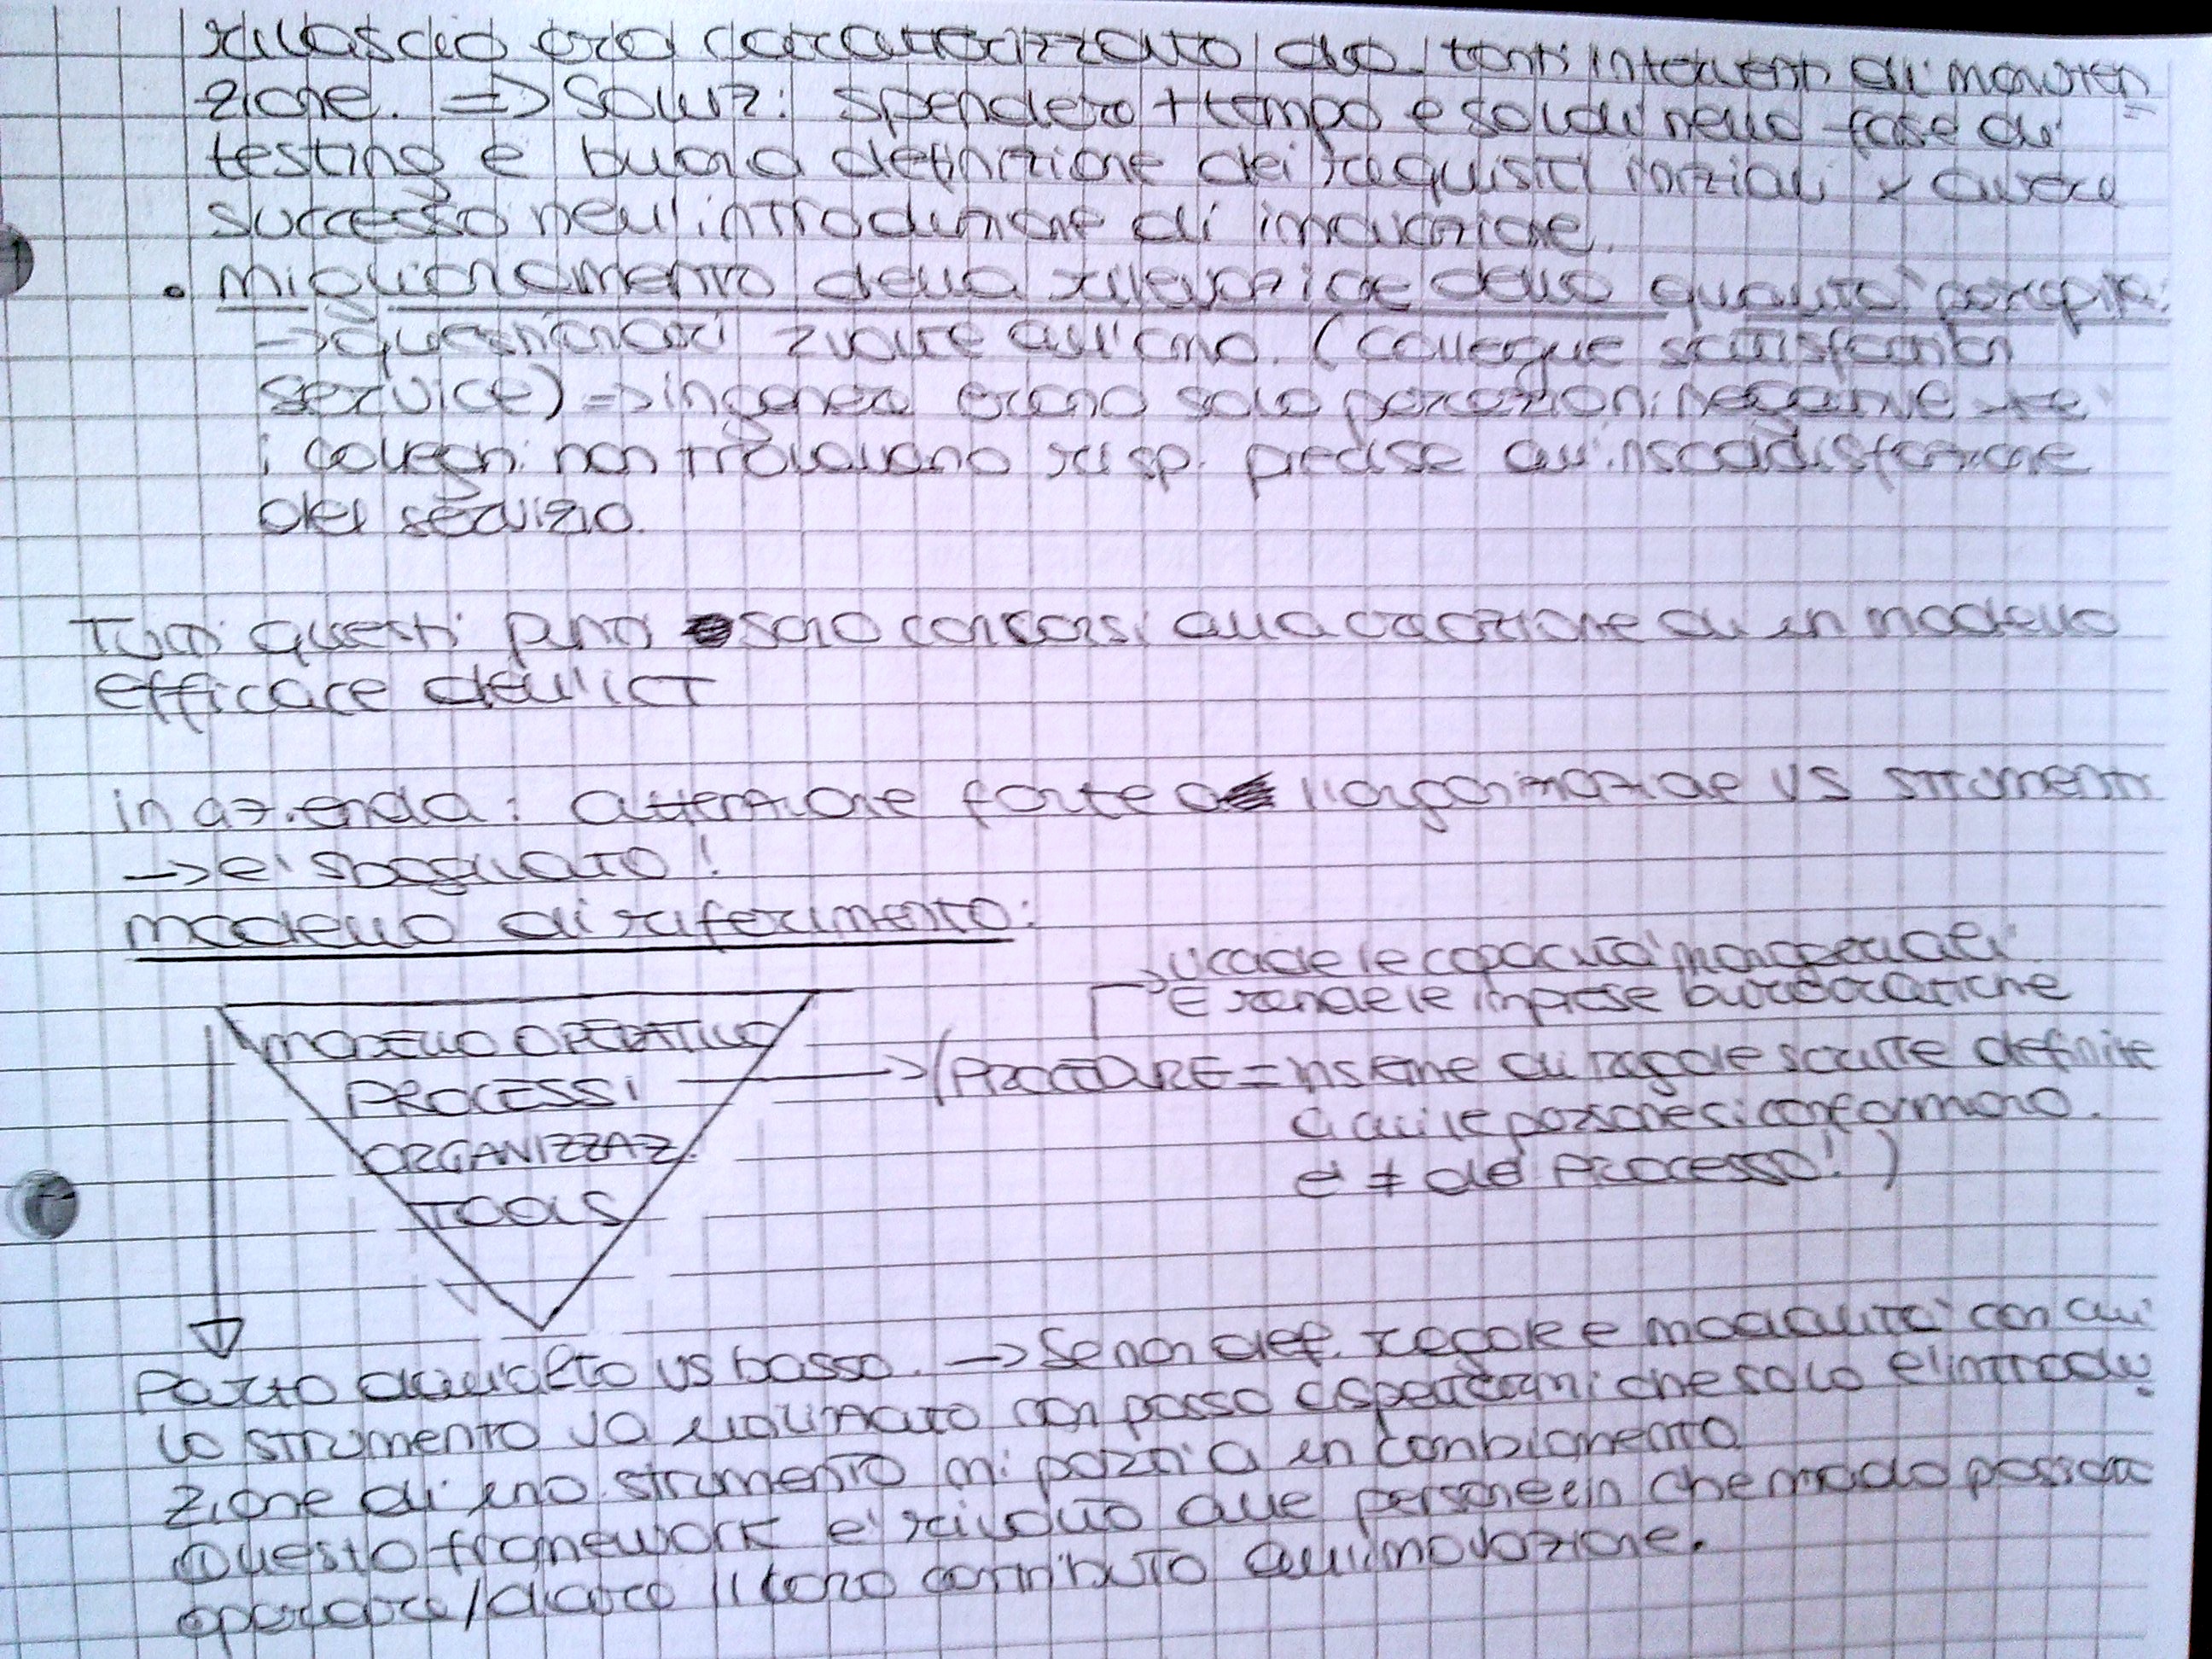 rilascio era caratterizzato da tanti interventi di manuten
zione. => Soluz: spendere + tempo e soldi nella fase di
testing e buona definizione dei requisiti iniziali x avere
successo nell'introduzione di innovazione.
• miglioramento della rilevazione della qualità percepita:
-> questionari 2 volte all'anno. (colleague satisfaction
service) => in genere erano solo percezioni negative
i colleghi non trovavano risp. precise all'insoddisfazione
del servizio.
Tutti questi punti sono consorsi alla creazione di un modello
efficace dell'ICT
in azienda: attenzione forte a l'organizzazione VS strumenti
-> e' sbagliato!
modello di riferimento:
-> uccide le capacità manageriali
e rende le imprese burocratiche
MODELLO OPERATIVO
PROCESSI -> (PROCEDURE = insieme di regole scritte definite
a cui le persone si conformano.
e' ≠ da PROCESSO!)
ORGANIZZAZ.
TOOLS
Parto dall'alto VS basso. -> Se non def. regole e modalità con cui
lo strumento va utilizzato non posso aspettarmi che solo l'introdu
zione di uno strumento mi porti a un cambiamento
Questo framework e' rivolto alle persone e in che modo possono
operare/dare il loro contributo all'innovazione.